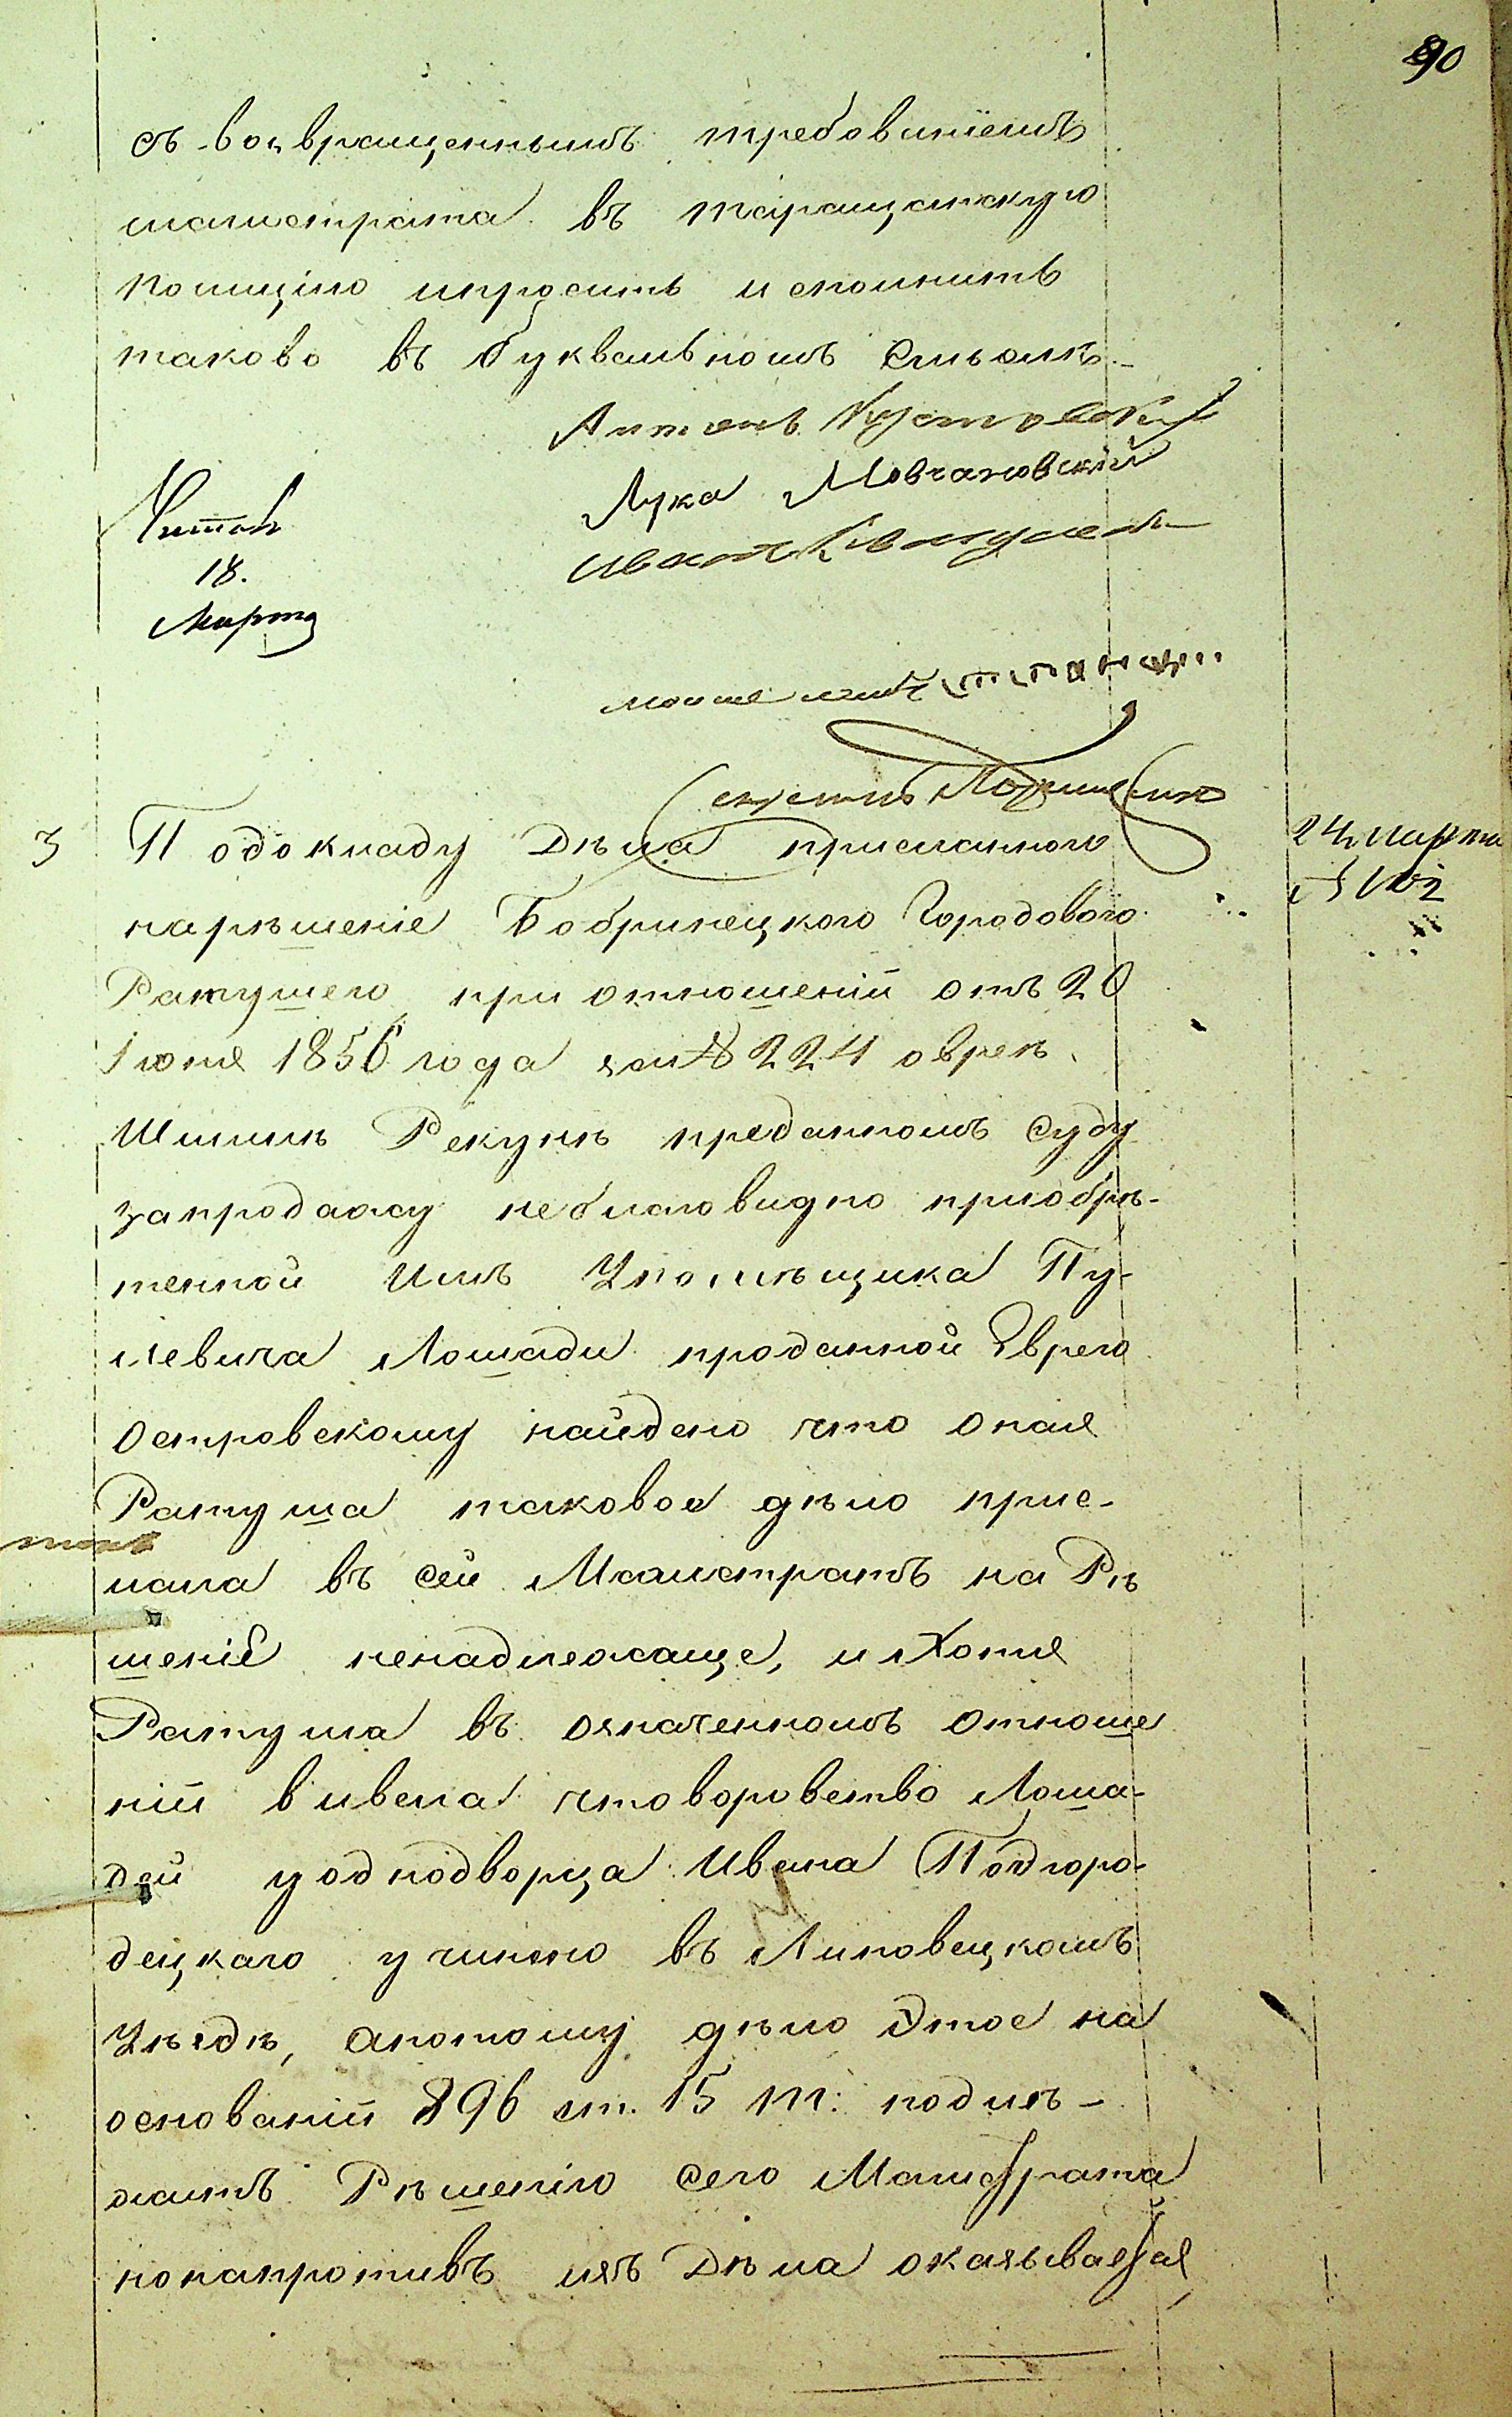 90
съ возвращеннымъ требованіемъ
магистрата въ таращанскую
полицію ипросить исполнить
таково въ буквальномъ смыслѣ
Антонъ Кустовскій
Лука Мовчановскій
Иванъ
Читалъ
18.
Марта
3 Подокладу Дѣла присланного
нарѣшеніе Бобринецкого Городового
Ратушею при отношеніи отъ 20
Іюня 1856 года за № 224 оевреѣ
Шмилѣ Рекунѣ преданномъ суду
запродажу неблаговидно приобрѣ-
тенной имъ Упомѣщика Пу-
левича Лошади проданной Еврею
островскому найдено что оная
Ратуша таковое дѣло прис-
лала въ сей Магистратъ на Рѣ
шеніе ненадлежаще, ихотя
Ратуша въ означенномъ отноше
ніи вивела чтоворовство Лоша-
дей уоднодворца Ивана Подгоро-
децкаго учинено въ Липовецкомъ
Уѣздѣ, апотому дѣло Этое на
основаніи 896 ст. 15 т: подлѣ-
житъ Рѣшенію сего Магистрата
нонапротивъ изъ Дѣла оказывается
24 марта
№ 1102